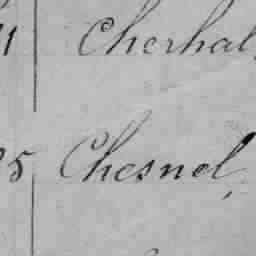 1 Cherhal
5 Chesnel,